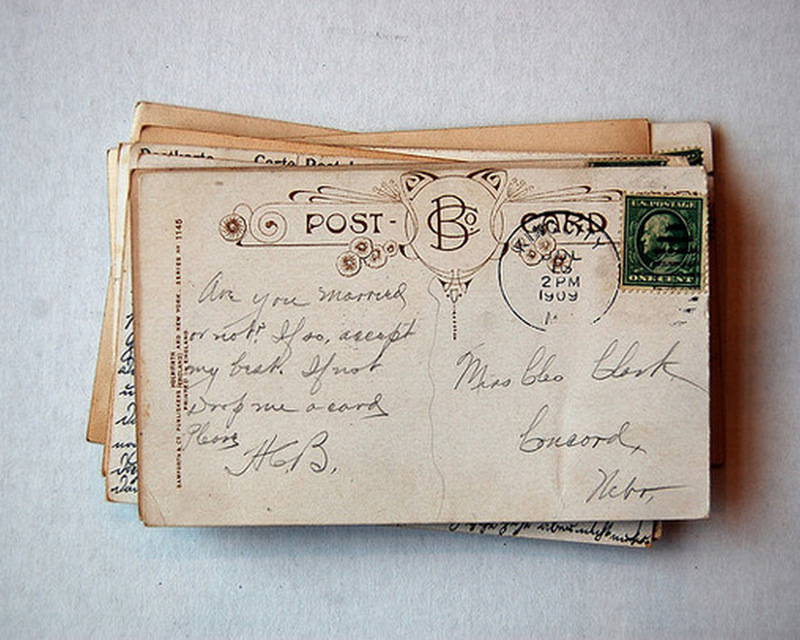 Postkarte Carte Postal
POST- B Co CARD
U.S. POSTAGE
ONE CENT
2 PM
1909
SERIES Nº 1145
PRINTED IN ENGLAND
Are you married
or not? If so, accept
my best. If not
Drop me a card
Please
H.B.
Miss Cleo Clark
Concord,
Nebr.